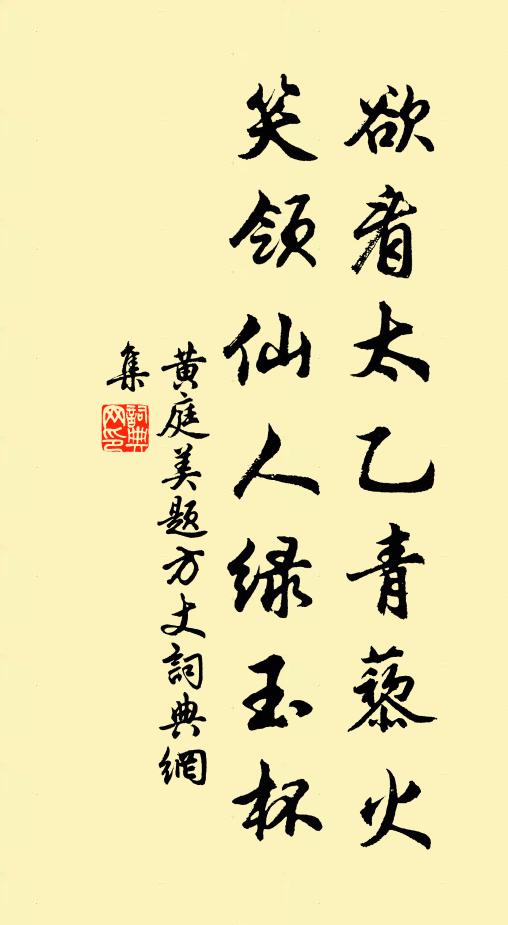 欲看太乙青藜火
笑领仙人绿玉杯
黄庭美题方丈詞典網
集
詞典
网印